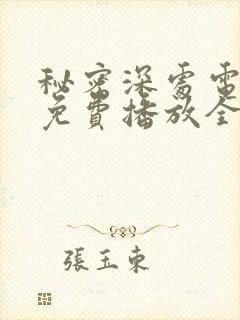 秘密深處電
免費播放全
張玉東